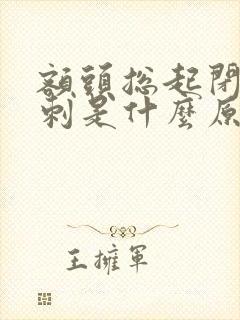 額頭總起閉
刺是什麼原
王擁軍